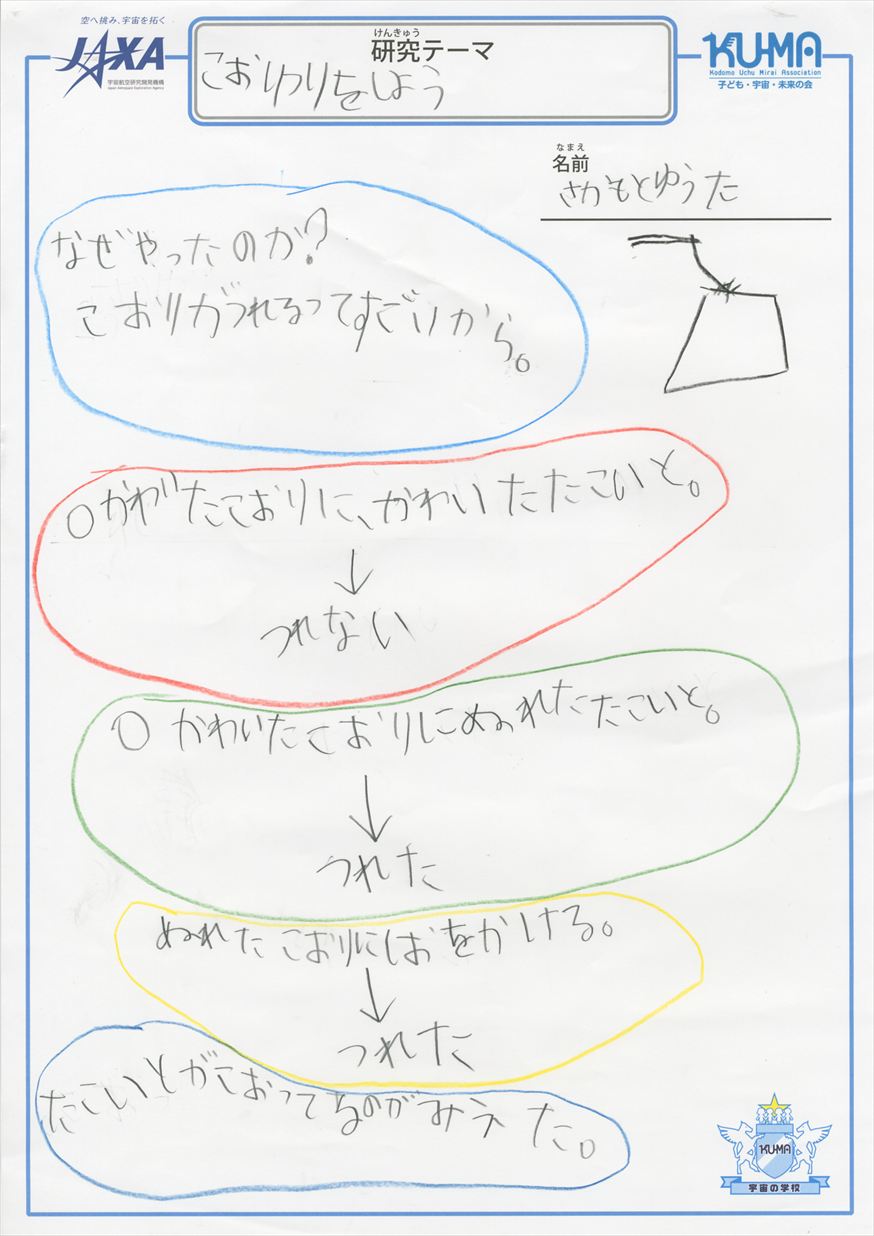 空へ挑み、宇宙を拓く
JAXA
宇宙航空研究開発機構
Japan Aerospace Exploration Agency
けんきゅう
研究テーマ
こおりつりをしよう
KU-MA
Kodomo Uchu Mirai Association
子ども・宇宙・未来の会
なまえ
名前
さかもとゆうた
なぜやったのか?
こおりがつれるってすごいから。
○かわいたこおりに、かわいたたこいと。
↓
つれない
○かわいたこおりにぬれたたこいと。
↓
つれた
ぬれたこおりにしおをかける。
↓
つれた
たこいとがこおってるのがみえた。
KU-MA
宇宙の学校